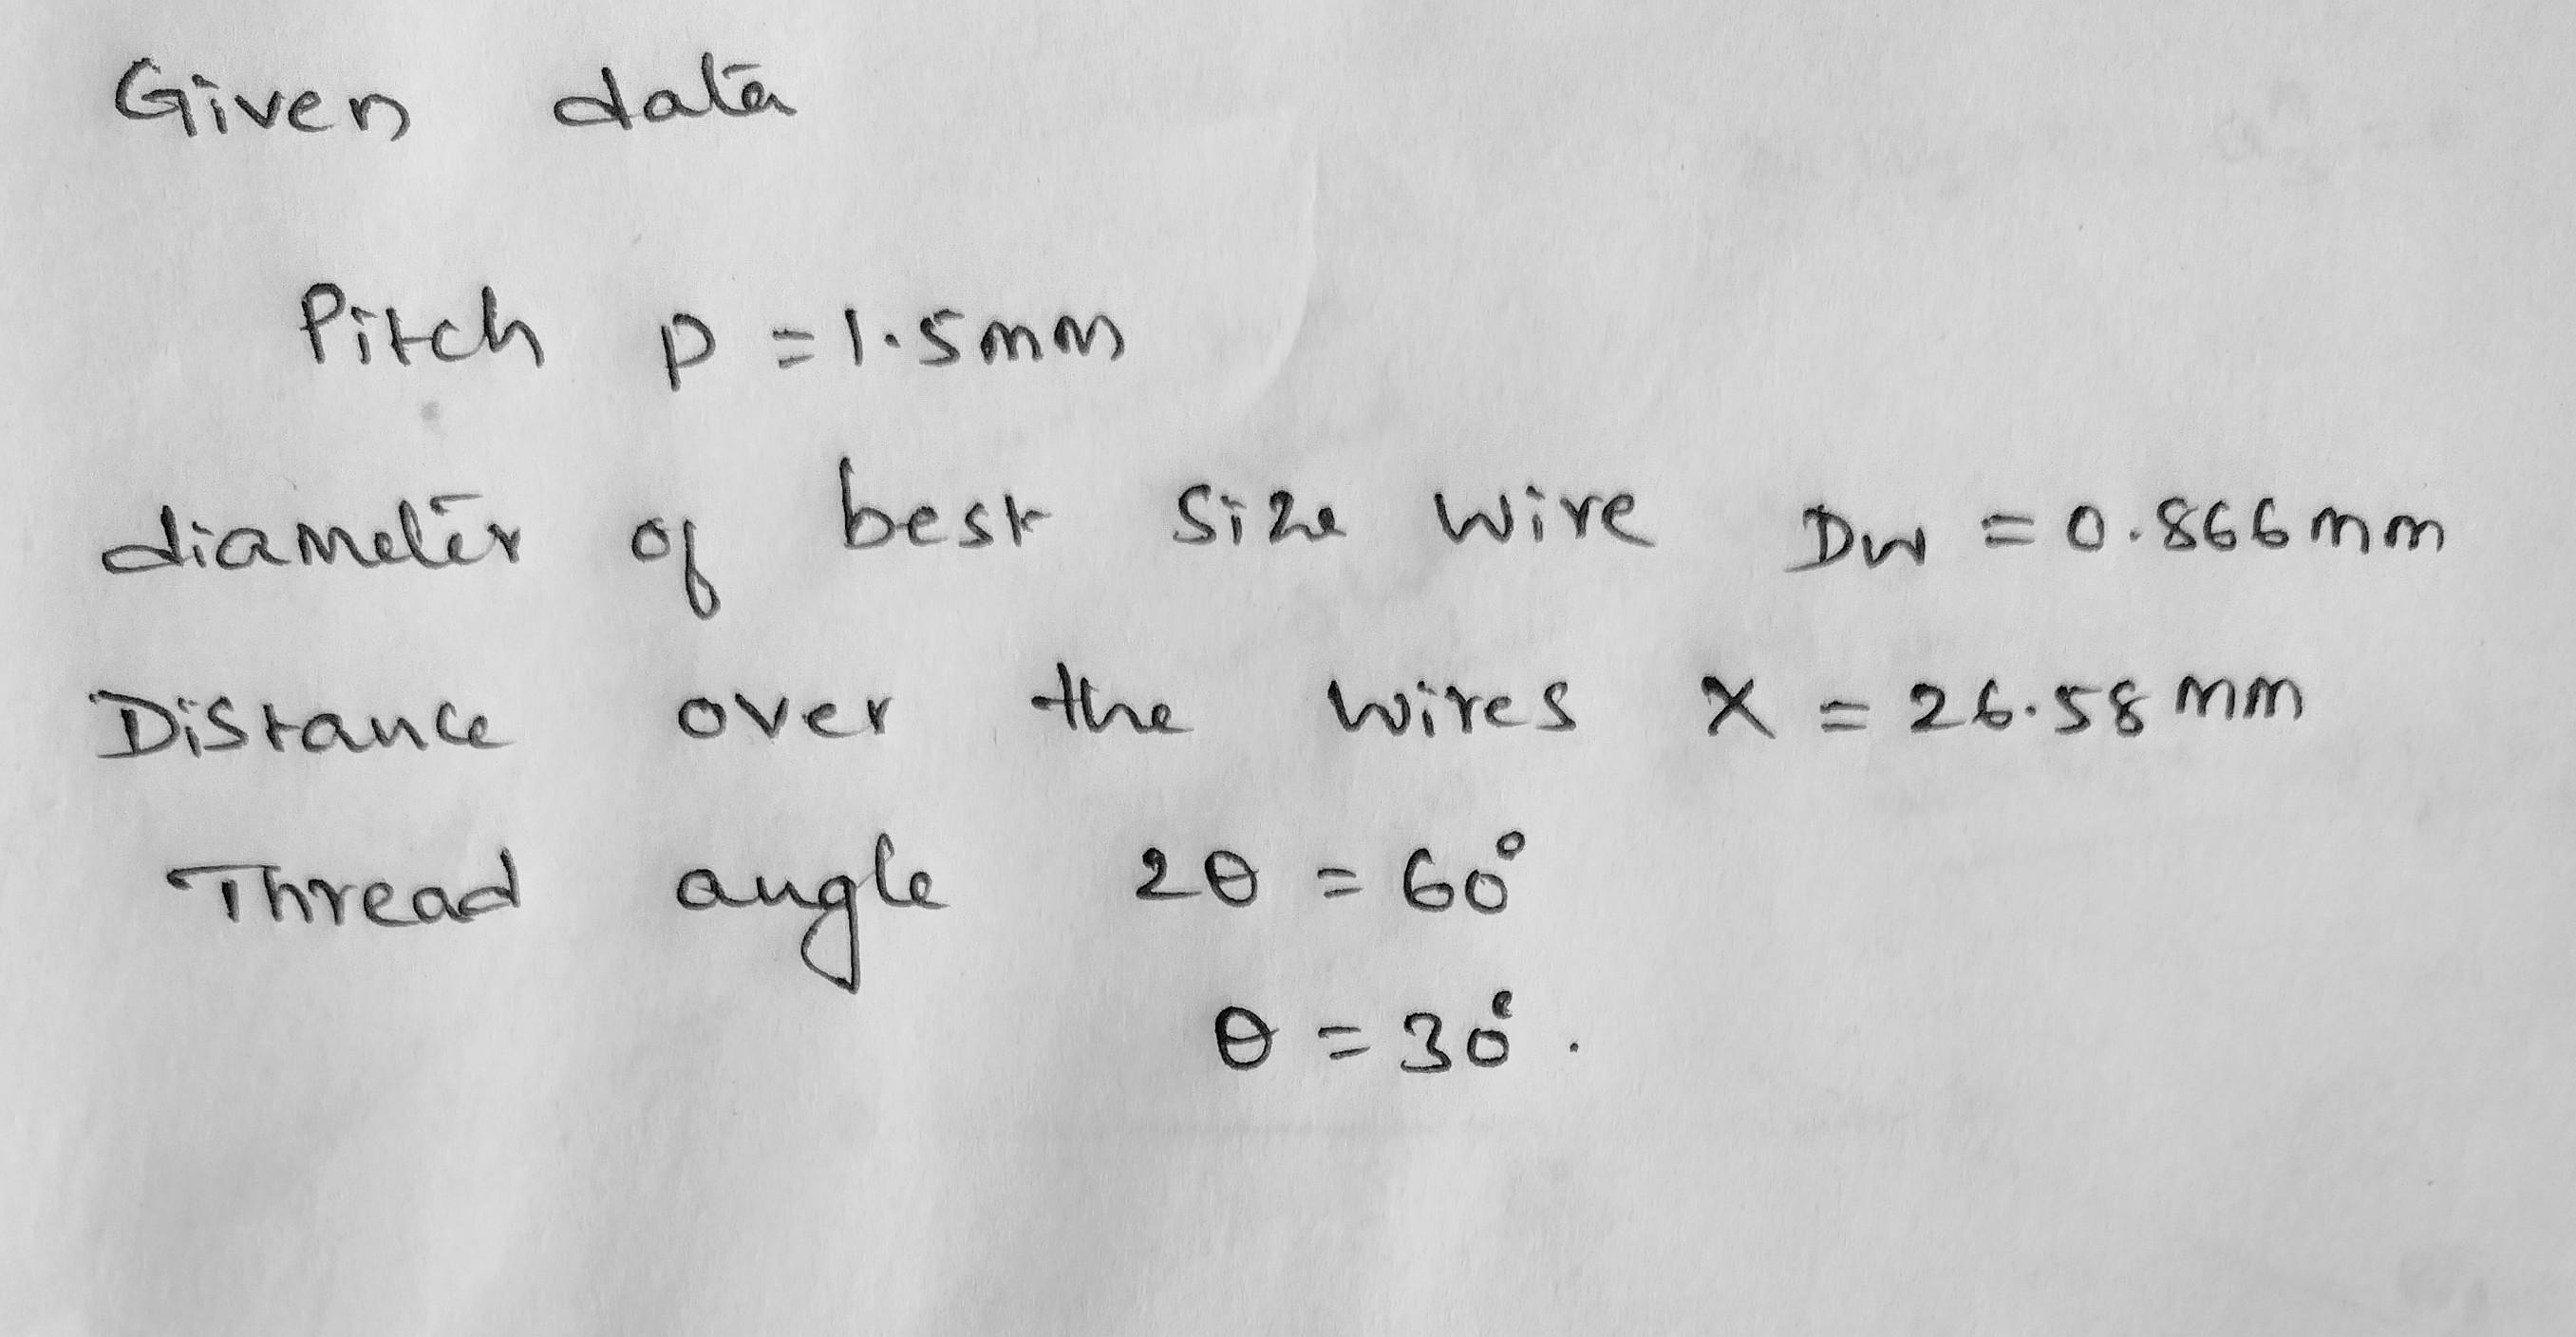 Given data
Pitch p = 1.5mm
diameter of best size wire Dw = 0.866mm
Distance over the wires x = 26.58mm
Thread angle 2θ = 60°
θ = 30°.